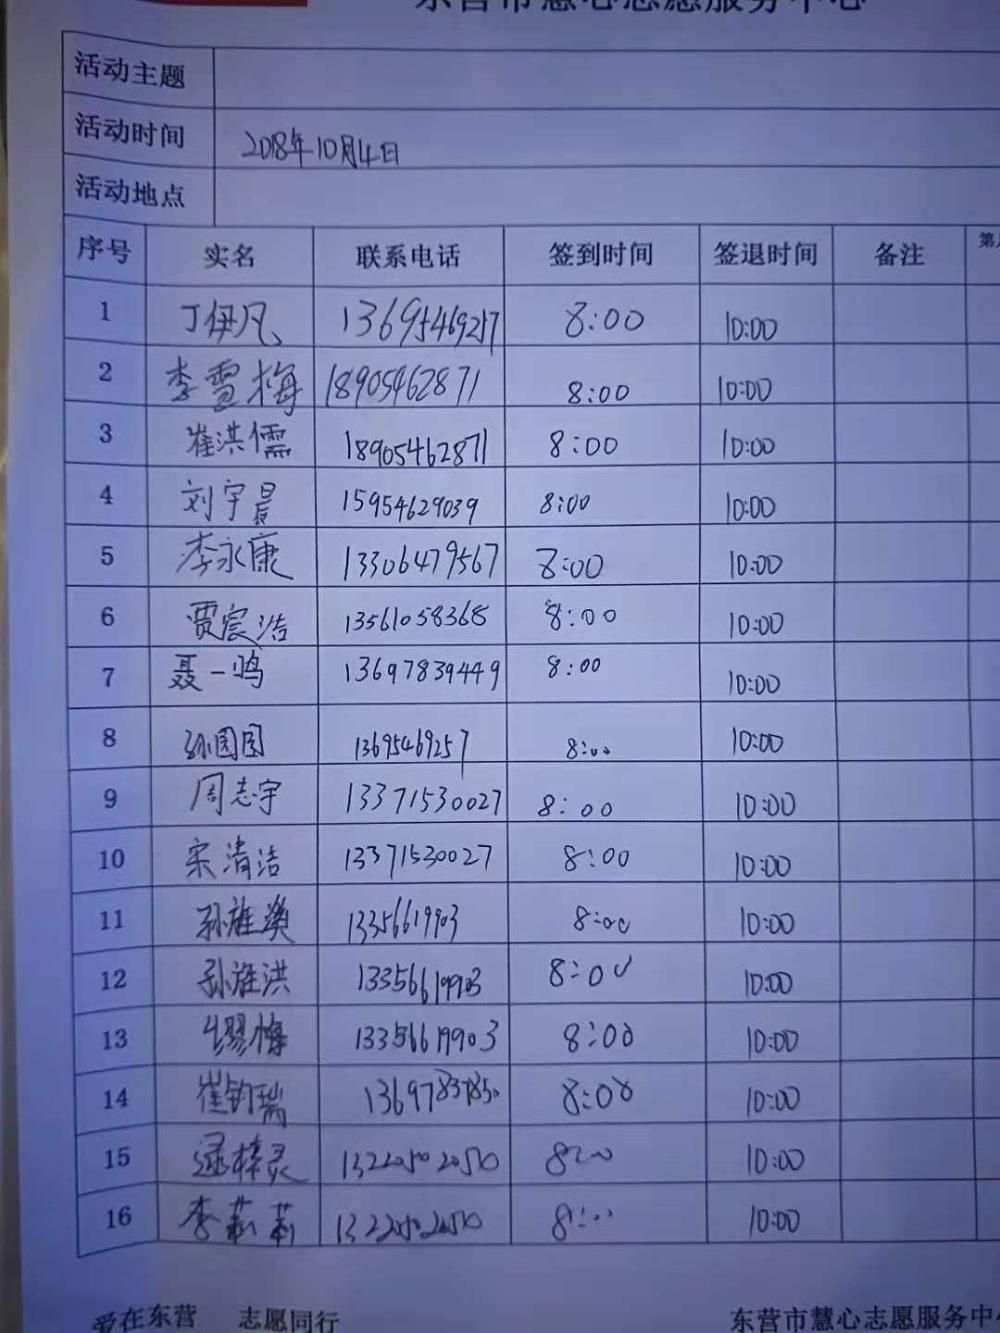 东营市慧心志愿服务中心
活动主题
活动时间 2018年10月4日
活动地点
序号 实名 联系电话 签到时间 签退时间 备注 第
1 丁伊凡 13695469257 8:00 10:00
2 李雪梅 18905462871 8:00 10:00
3 崔洪儒 18905462871 8:00 10:00
4 刘宇晨 15954629039 8:00 10:00
5 李永康 13306479567 8:00 10:00
6 贾宸浩 13561058368 8:00 10:00
7 聂一鸣 13697839449 8:00 10:00
8 孙圆圆 13695469257 8:00 10:00
9 周志宇 13371530027 8:00 10:00
10 宋清洁 13371530027 8:00 10:00
11 孙维 13356619903 8:00 10:00
12 孙维洪 13356619903 8:00 10:00
13 缪梅 13356619903 8:00 10:00
14 崔钧瑞 8:00 10:00
15 逯梓灵 13220502050 8:00 10:00
16 李莉莉 13220502050 8:00 10:00
爱在东营 志愿同行 东营市慧心志愿服务中心